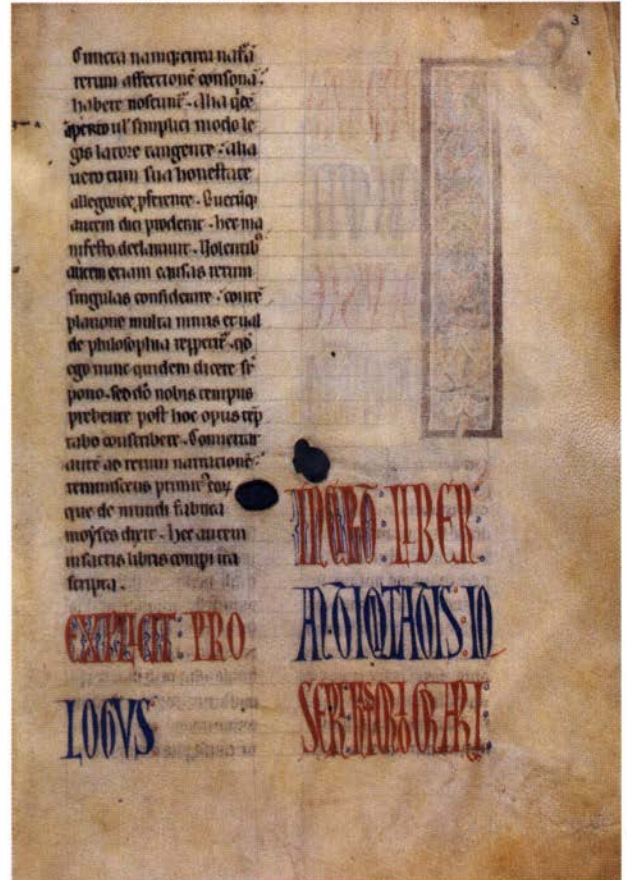 3
Cuncta namq; circa natã
rerum affectionē consonã
habere noscunt᷑. Alia qͥdē
aperto ul' simplici modo le
gis latore tangente. alia
uero cum sua honestate
allegorice pferente. Quecūq;
autem dici proderit. hec ma
nifesto declarauit. Uolentib;
autem etiam causas rerum
singulas considerare. contē
platione multa nimis et ual
de philosophia repperit᷑. qd̄
ego nunc quidem dicere su
pono. sed dō nobis tempus
prebente post hoc opus tēp
tabo conscribere. Conuertar
autē ad rerum narrationē.
reminiscens primitꝰ eoꝝ
que de mundi fabrica
moyses dixit. hec autem
in sacris libris comperi ita
scripta.
EXPLICIT: PRO
LOGVS
INCIPIT: LIBER
ANTIQITATIS: IO
SEPI HISTORIOGRAPhI: